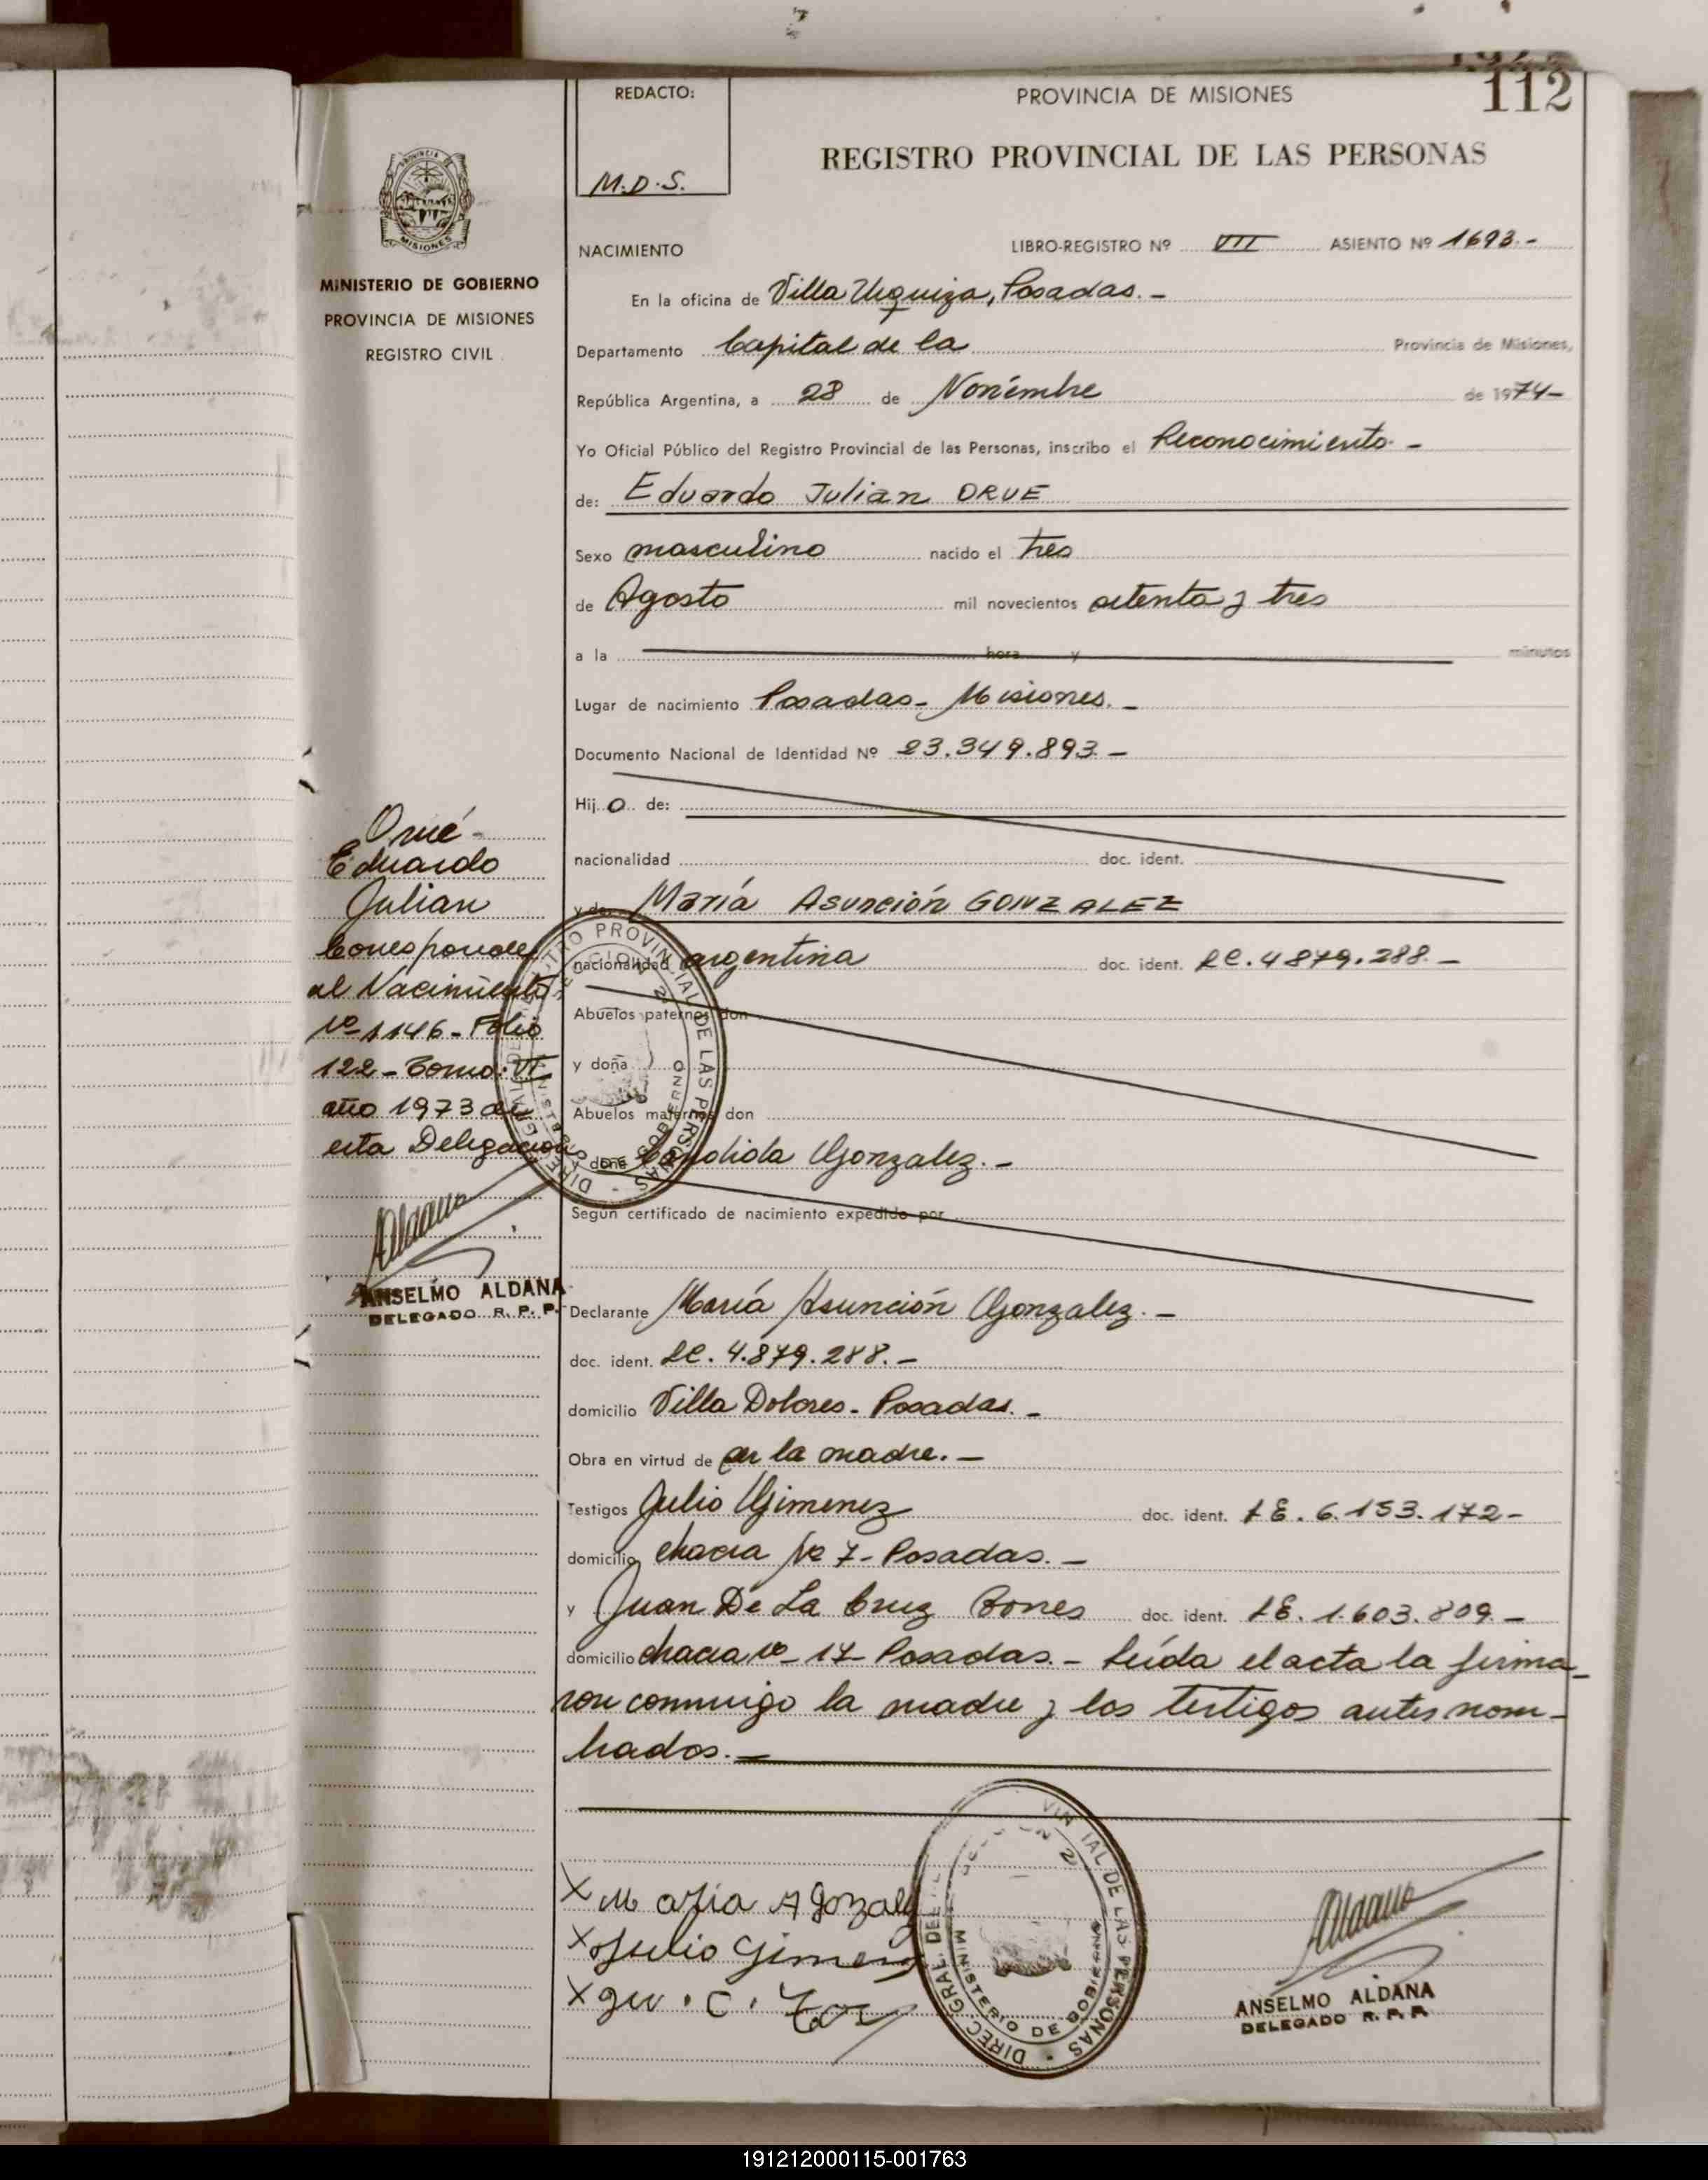 112
REDACTO:
M.D.S.
PROVINCIA DE MISIONES
REGISTRO PROVINCIAL DE LAS PERSONAS
PROVINCIA DE
MISIONES
MINISTERIO DE GOBIERNO
PROVINCIA DE MISIONES
REGISTRO CIVIL
NACIMIENTO
LIBRO-REGISTRO Nº VII ASIENTO Nº 1693.-
En la oficina de Villa Urquiza, Posadas.-
Departamento Capital de la Provincia de Misiones,
República Argentina, a 28 de Noviembre de 1974-
Yo Oficial Público del Registro Provincial de las Personas, inscribo el Reconocimiento.-
de: Eduardo Julian ORUE
Sexo masculino nacido el tres
de Agosto mil novecientos setenta y tres
a la hora y minutos
Lugar de nacimiento Posadas- Misiones.-
Documento Nacional de Identidad Nº 23.349.893.-
Hij o de:
nacionalidad doc. ident.
y de: María Asunción GONZALEZ
nacionalidad argentina doc. ident. LC. 4879.288.-
Abuelos paternos don
y doña
Abuelos maternos don
y doña Candida Gonzalez.-
Según certificado de nacimiento expedido por
Declarante María Asunción Gonzalez.-
doc. ident. LC. 4.879.288.-
domicilio Villa Dolores- Posadas.-
Obra en virtud de ser la madre.-
Testigos Julio Gimenez doc. ident. LE. 6.153.172-
domicilio chacra Nº 7- Posadas.-
y Juan De La Cruz Torres doc. ident. LE. 1.603.809.-
domicilio chacra Nº 17- Posadas.- Leída el acta la firma-
ron conmigo la madre y los testigos antes nom-
brados.-
Orué-
Eduardo
Julian
Corresponde
al Nacimiento
Nº 1146- Folio
122- Tomo: VI
año 1973 de
esta Delegacion
Aldana
ANSELMO ALDANA
DELEGADO R. P. P.
DIREC. GRAL. DEL REGISTRO PROVINCIAL DE LAS PERSONAS
MINISTERIO DE GOBIERNO
X Maria A Gonzalez
X Julio Gimenez
X Ju. C. Tor
DIREC. GRAL. DEL VINCIAL DE LAS PERSONAS
MINISTERIO DE GOBIERNO
Aldana
ANSELMO ALDANA
DELEGADO R. P. P.
191212000115-001763